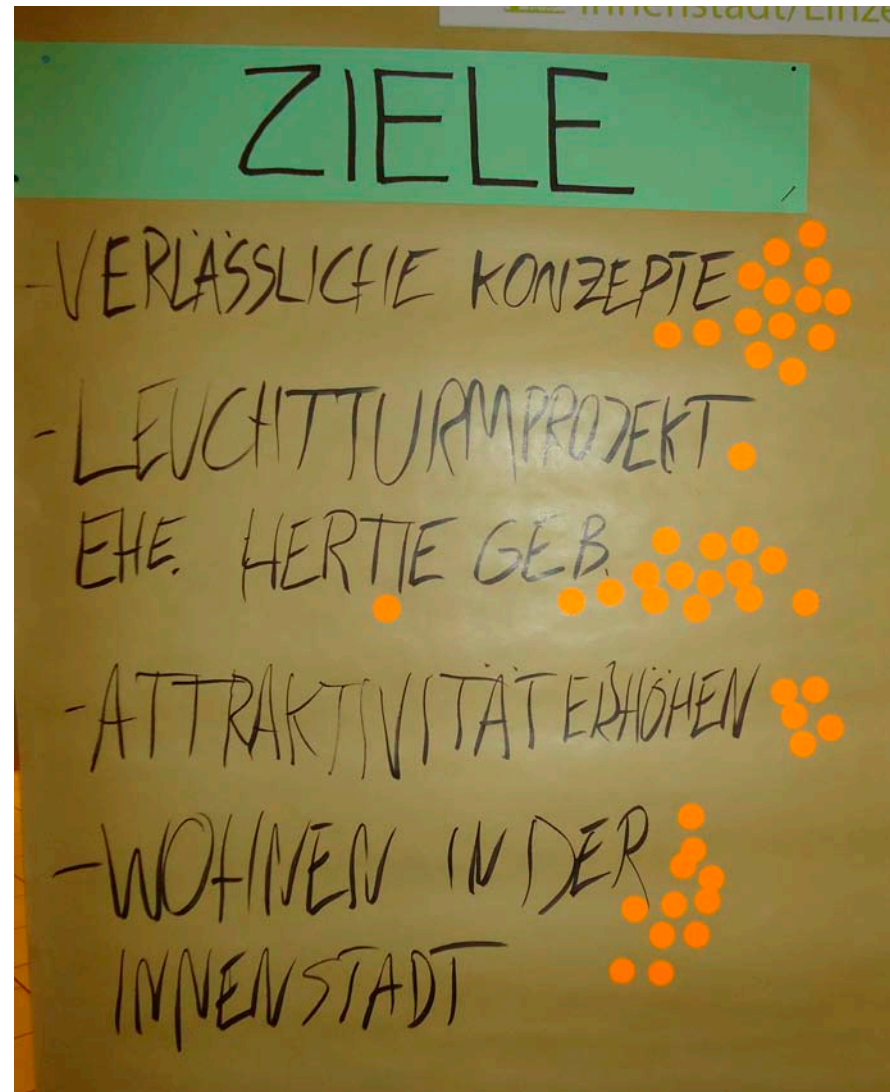 Innenstadt/Einze
ZIELE
-VERLÄSSLICHE KONZEPTE
-LEUCHTTURMPROJEKT
EHE. HERTIE GEB.
-ATTRAKTIVITÄT ERHÖHEN
-WOHNEN IN DER
INNENSTADT